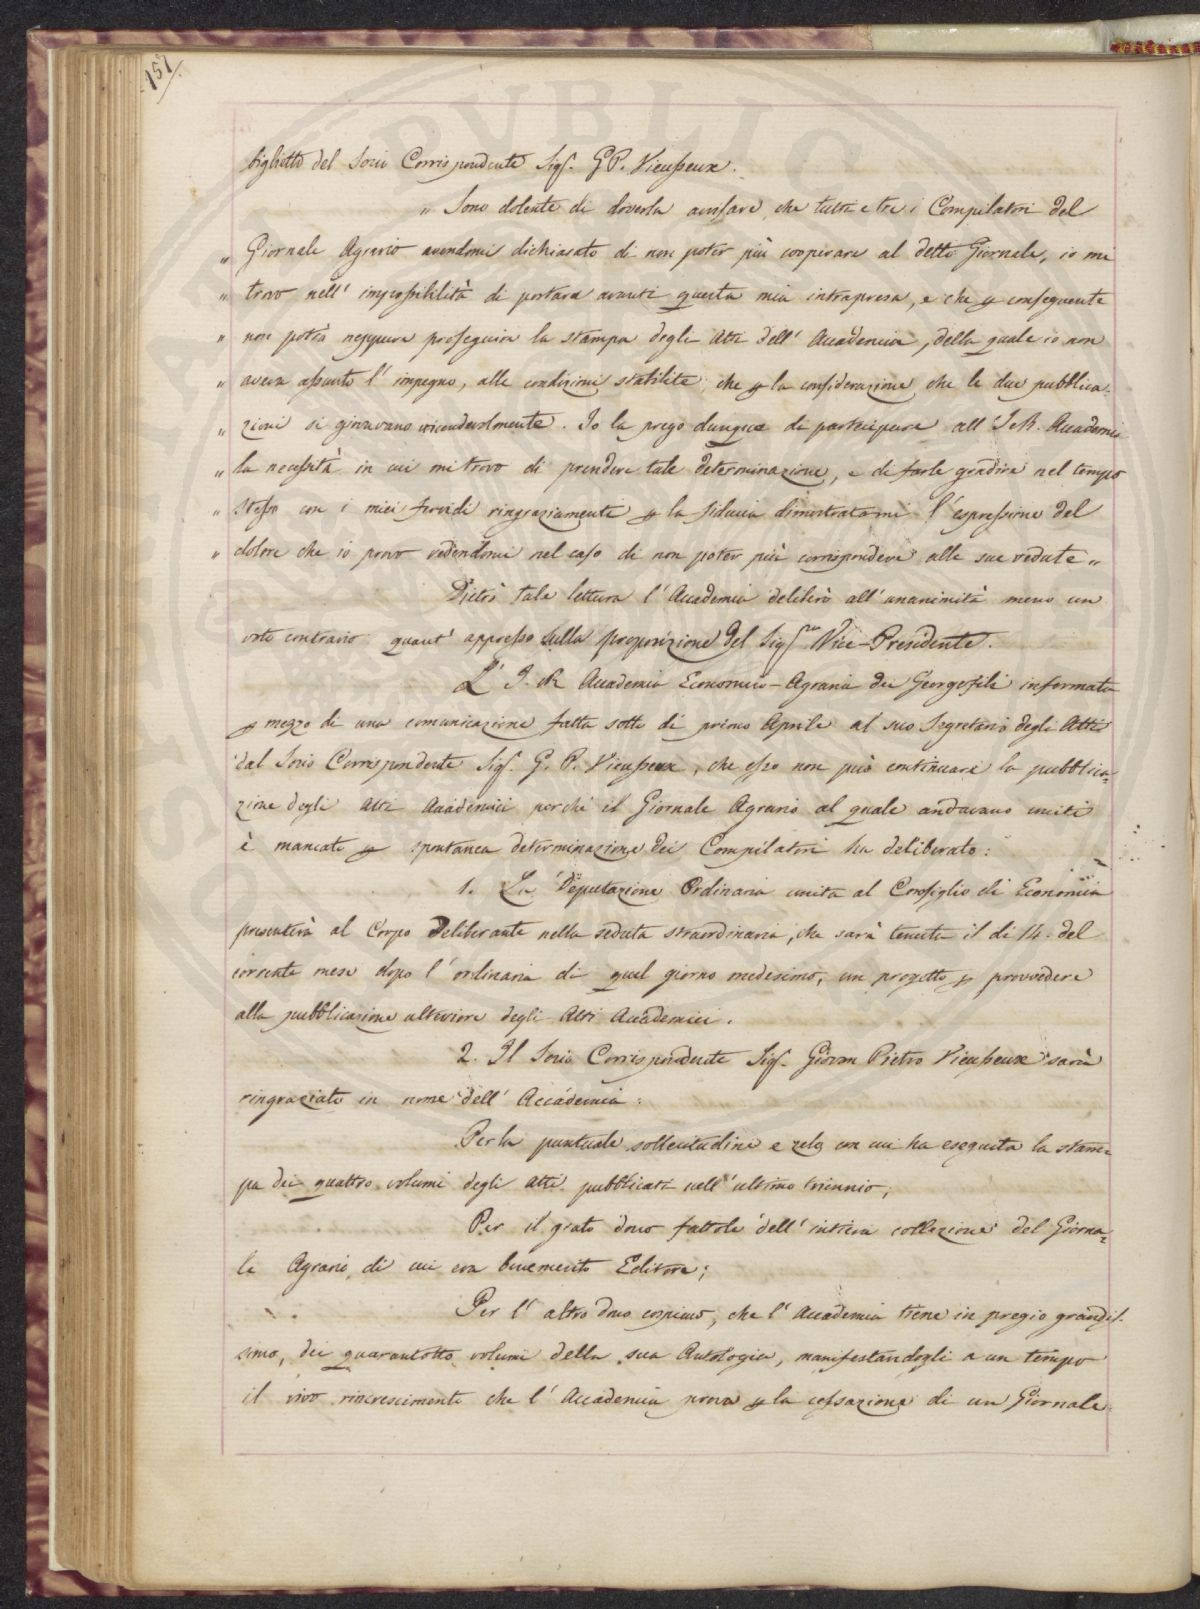 151
biglietto del Socio Corrispondente Sigr. G.P. Vieusseux.
„ Sono dolente di doverla avvisare che tutti e tre i Compilatori del
„ Giornale Agrario avendomi dichiarato di non poter più cooperare al detto Giornale, io mi
„ trovo nell' impossibilità di portare avanti questa mia intrapresa, e che p conseguente
„ non potrà neppure proseguire la stampa degli Atti dell' Accademia, della quale io non
„ aveva assunto l' impegno, alle condizioni stabilite, che p la considerazione che le due pubblica-
„ zioni si giovavano vicendevolmente. Io la prego dunque di partecipare all' I e R. Accademia
„ la necessità in cui mi trovo di prendere tale determinazione, e di farle gradire nel tempo
„ stesso con i miei fervidi ringraziamenti p la fiducia dimostratami l' espressione del
„ dolore che io provo vedendomi nel caso di non poter più corrispondere alle sue vedute „
Dietro tale lettura l' Accademia deliberò all' unanimità meno un
voto contrario quant' appresso sulla proposizione del Sigr Vice-Presidente.
L' I. e R. Accademia Economico-Agraria dei Georgofili informata
p mezzo di una comunicazione fatta sotto di primo Aprile al suo Segretario degli Atti
dal Socio Corrispondente Sigr. G. P. Vieusseux, che esso non può continuare la pubblica=
zione degli Atti Accademici perchè il Giornale Agrario al quale andavano uniti
è mancato p spontanea determinazione dei Compilatori ha deliberato:
1. La Deputazione Ordinaria unita al Consiglio di Economia
presenterà al Corpo Deliberante nella seduta straordinaria, che sarà tenuta il dì 14. del
corrente mese dopo l' ordinaria di quel giorno medesimo, un progetto p provvedere
alla pubblicazione ulteriore degli Atti Accademici.
2. Il Socio Corrispondente Sigr. Giovan Pietro Vieusseux sarà
ringraziato in nome dell' Accademia:
Per la puntuale sollecitudine e zelo con cui ha eseguita la stam-
pa dei quattro volumi degli Atti pubblicati nell' ultimo triennio;
Per il grato dono fattole dell' intiera collezione del Giorna=
le Agrario di cui era benemerito Editore;
Per l' altro dono cospicuo, che l' Accademia tiene in pregio grandis-
simo, dei quarantotto volumi della sua Antologia, manifestandogli a un tempo
il vivo rincrescimento che l' Accademia prova p la cessazione di un Giornale